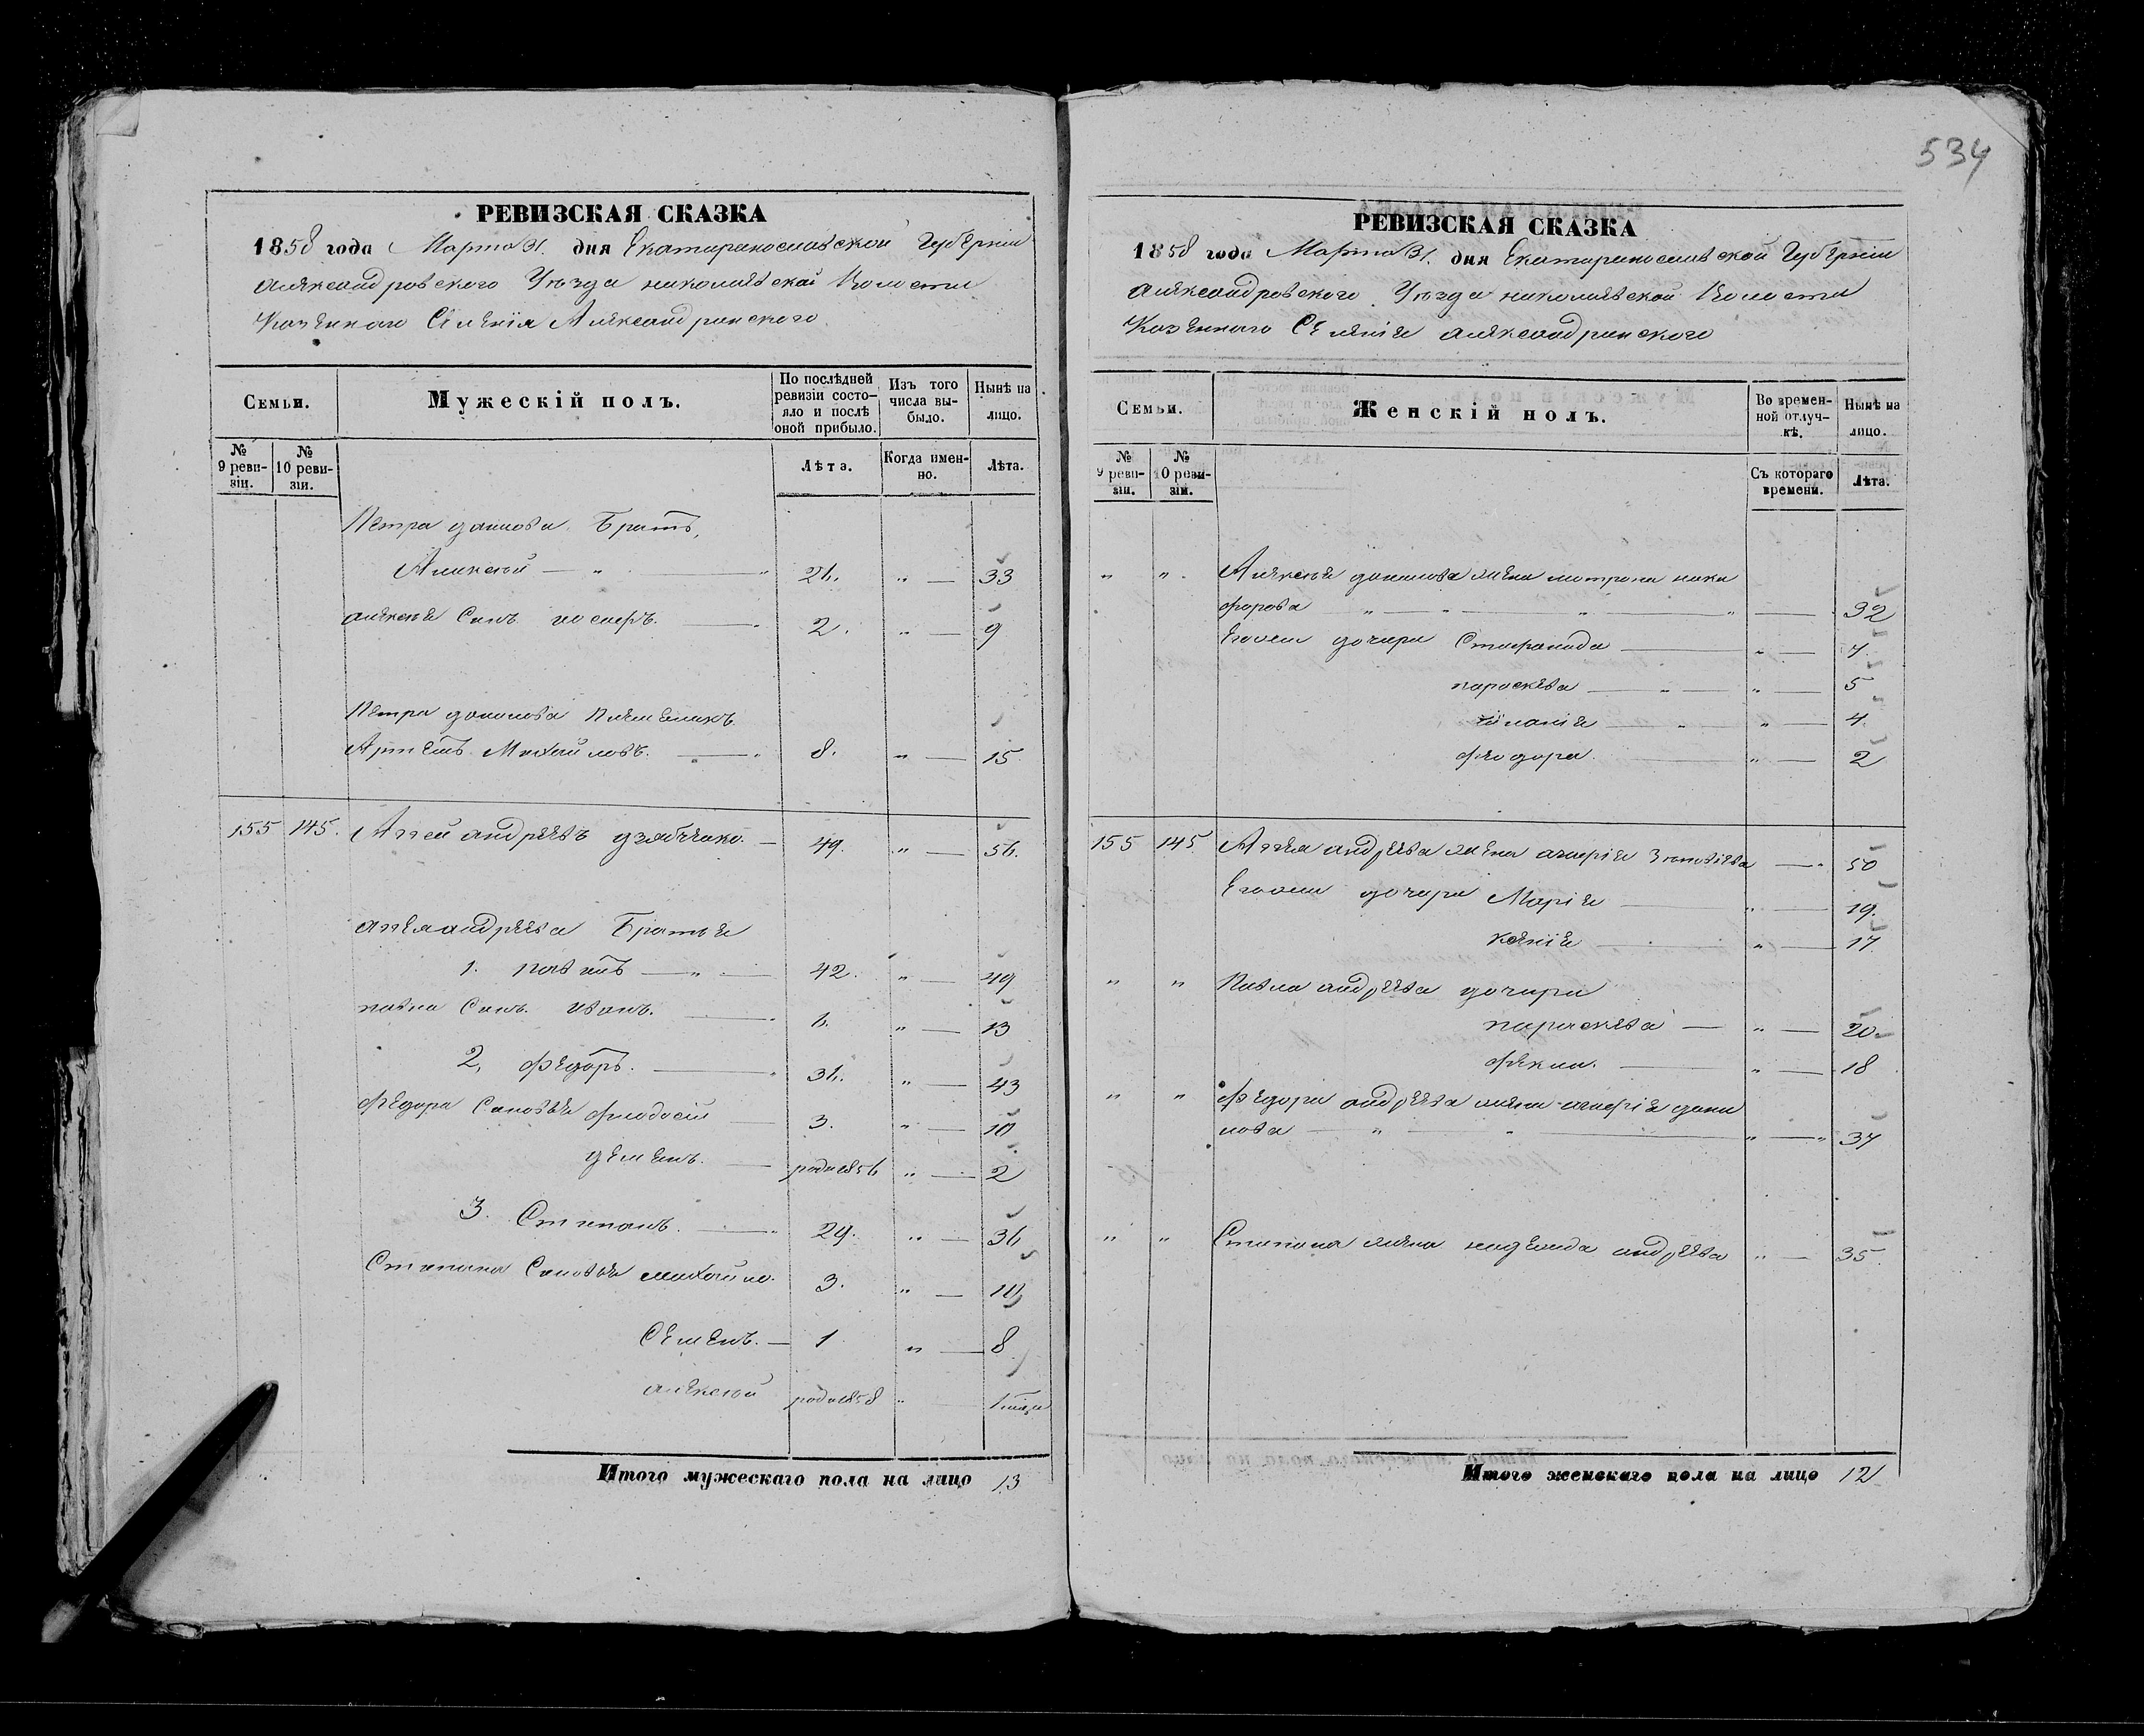 534
РЕВИЗСКАЯ СКАЗКА
1858 года Марта 31. дня Екатеринославской Губернии
Александровского Уезда николаевской Волости
Казенного Селения Александринского
Семьи. Мужескій полъ. По послѣдней ревизіи состояло и послѣ оной прибыло. Изъ того числа выбыло. Нынѣ на лицо.
№ 9 ревизіи. № 10 ревизіи. Лѣта. Когда именно. Лѣта.
Петра данилова Братъ,
Алексей — " — " 26. " — 33
алексея Сынъ иосифъ. — 2. " — 9
Петра данилова Племеникъ
Артемъ Михайловъ. — " 8. " — 15
155 145. Аггей андреевъ — 49. " — 56.
аггея андреева Братья
1. павелъ — " — 42. " — 49
павла Сынъ иванъ. — 6. " — 13
2. Федоръ. — 36. " — 43
Федора Сыновья феодосій — 3. " — 10
демень. — родил 1856 " — 2
3. Степанъ. — " 29. " — 36
Степана Сыновья михайло. 3. " — 10
Семенъ. — 1 " — 8
алексей родил 1858 "
Итого мужескаго пола на лицо 13
РЕВИЗСКАЯ СКАЗКА
1858 года Марта 31. дня Екатеринославской Губернии
александровского Уезда николаевской Волости
Казенного Селения александринского
Семьи. Женскій полъ. Во временной отлучкѣ. Нынѣ на лицо.
№ 9 ревизіи. № 10 ревизіи. Съ котораго времени. Лѣта.
" " Алексея данилова жена матрона ники
форова — " — " — " — " — 32
Егоже дочери Стефанида — " — 7.
параскева — " — " — 5
— " — " — 4.
феодора. — " — 2
155 145 Аггея андреева жена — " 50
Егоже дочери Мария — " — 19.
— " — 17.
" " Павла андреева дочери
параскева — " — 20
фекла. — " — 18
" " Федора андреева жена дани
лова — " — " — " — " 37
" " Степана жена надежда андреева " — 35.
Итого женскаго пола на лицо 12